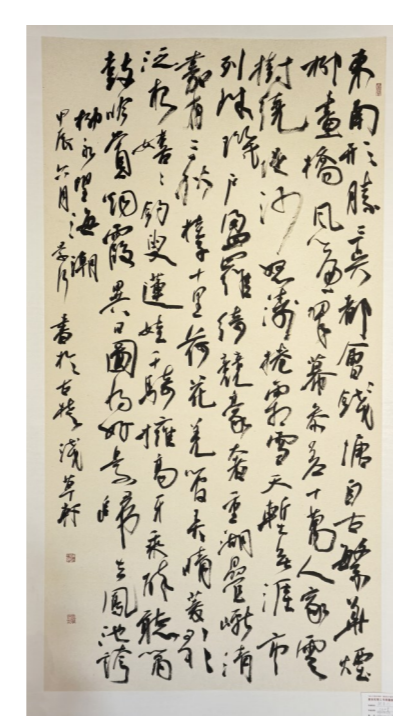 東南形勝三吳都會錢塘自古繁華煙
柳畫橋風簾翠幕參差十萬人家雲
樹繞堤沙怒濤捲霜雪天塹無涯市
列珠璣戶盈羅綺競豪奢重湖疊巘清
嘉有三秋桂子十里荷花羌管弄晴菱歌
泛夜嬉〻釣叟蓮娃千騎擁高牙乘醉聽簫
鼓吟賞烟霞異日圖將好景歸去鳳池誇
柳永望海潮
甲辰六月書於古婺淺草軒